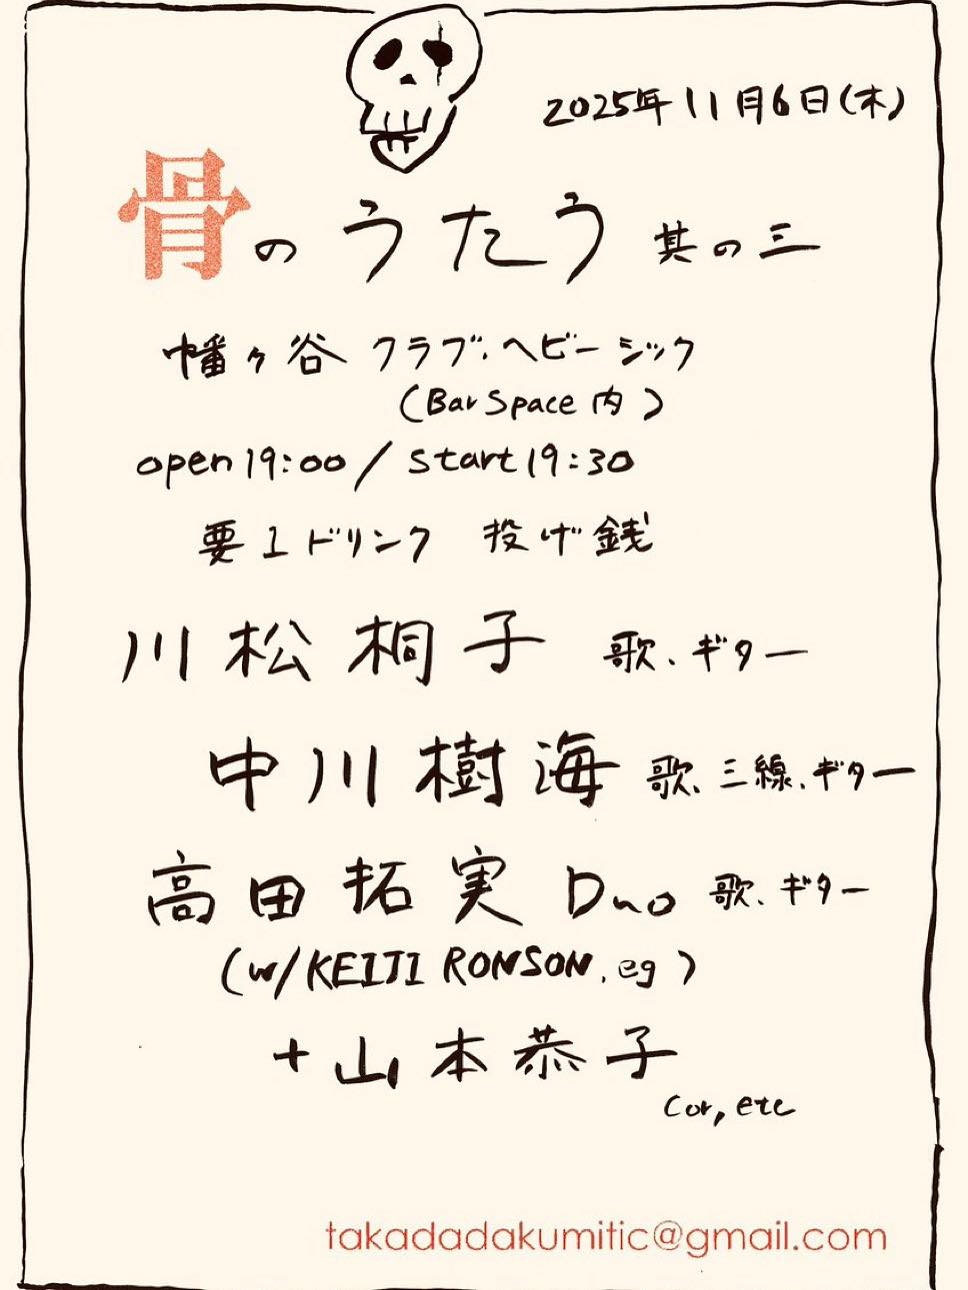 2025年11月6日(木)
骨のうたう 其の三
幡ヶ谷 クラブ・ヘビーシック
(Bar Space 内)
open 19:00 / start 19:30
要1ドリンク 投げ銭
川松桐子 歌、ギター
中川樹海 歌、三線、ギター
高田拓実 Duo 歌、ギター
(w/ KEIJI RONSON, eg)
+山本恭子
Cor, etc
takadadakumitic@gmail.com